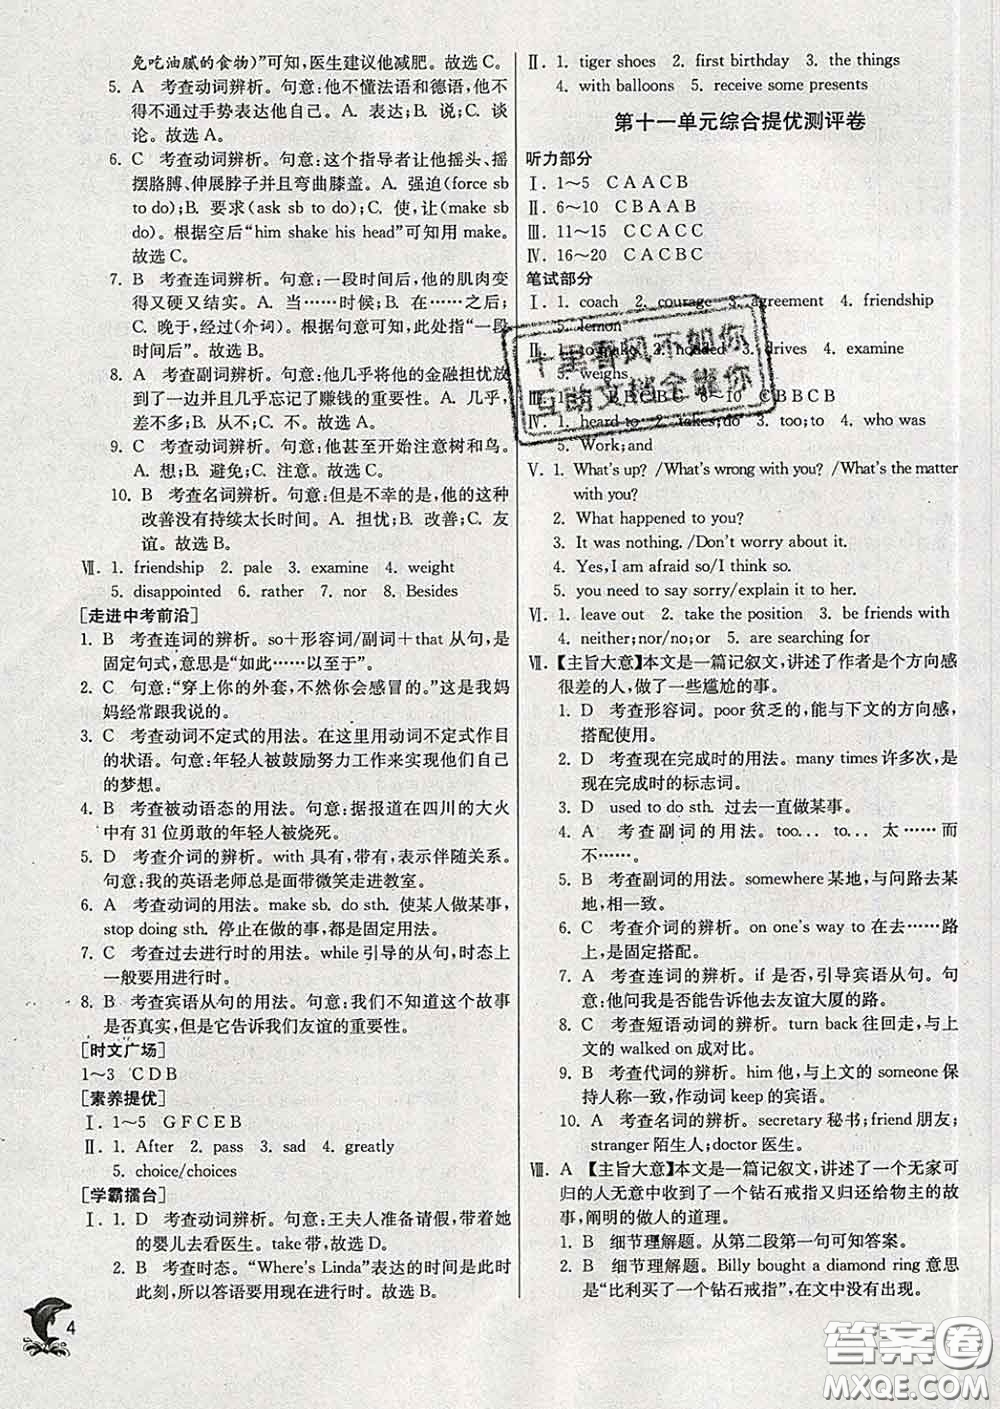 免吃油腻的食物)”可知,医生建议他减肥。故选C。
5. A 考查动词辨析。句意:他不懂法语和德语,他不
得不通过手势表达他自己。A. 表达;B. 说;C. 谈
论。故选A。
6. C 考查动词辨析。句意:这个指导者让他摇头、
摆胳膊、伸展脖子并且弯曲膝盖。A. 强迫(force sb
to do);B. 要求(ask sb to do);C. 使,让(make sb
do)。根据空后“him shake his head”可知用 make。
故选C。
7. B 考查连词辨析。句意:一段时间后,他的肌肉变
得又硬又结实。A. 当……时候;B. 在……之后;
C. 晚于,约在(介词)。根据句意可知,此处指“一段
时间后”。故选B。
8. A 考查副词辨析。句意:他几乎将他的金融担忧放
到了一边并且几乎忘记了赚钱的重要性。A. 几乎,
差不多;B. 从不;C. 不。故选A。
9. C 考查动词辨析。句意:他甚至开始注意树和鸟。
A. 想;B. 避免;C. 注意。故选C。
10. B 考查名词辨析。句意:但是不幸的是,他的这种
改善没有持续太长时间。A. 担忧;B. 改善;C. 友
谊。故选B。
Ⅶ. 1. friendship 2. pale 3. examine 4. weight
5. disappointed 6. rather 7. nor 8. Besides
[走进中考前沿]
1. B 考查连词的辨析。so+形容词/副词+that 从句,是
固定句式,意思是“如此……以至于”。
2. C 句意:“穿上你的外套,不然你会感冒的。”这是我妈
妈经常跟我说的。
3. C 考查动词不定式的用法。在这里用动词不定式作目
的状语。句意:年轻人被鼓励努力工作来实现他们自己
的梦想。
4. B 考查被动语态的用法。句意:据报道在四川的大火
中有 31 位勇敢的年轻人被烧死。
5. D 考查介词的辨析。with 具有,带有,表示伴随关系。
句意:我的英语老师总是面带微笑走进教室。
6. A 考查动词的用法。make sb. do sth. 使某人做某事,
stop doing sth. 停止在做的事,都是固定用法。
7. C 考查过去进行时的用法。while 引导的从句,时态上
一般要用进行时。
8. B 考查宾语从句的用法。句意:我们不知道这个故事
是否真实,但是它告诉我们友谊的重要性。
[时文广场]
1~3 C D B
[素养提优]
Ⅰ. 1~5 G F C E B
Ⅱ. 1. After 2. pass 3. sad 4. greatly
5. choice/choices
[学霸擂台]
Ⅰ. 1. D 考查动词辨析。句意:王夫人准备请假,带着她
的婴儿去看医生。take 带,故选D。
2. B 考查时态。“Where's Linda”表达的时态是此时
此刻,所以答语要用现在进行时。故选B。
4
Ⅱ. 1. tiger shoes 2. first birthday 3. the things
4. with balloons 5. receive some presents
第十一单元综合提优测评卷
听力部分
Ⅰ. 1~5 C A A C B
Ⅱ. 6~10 C B A A B
Ⅲ. 11~15 C C A C C
Ⅳ. 16~20 C A C B C
笔试部分
Ⅰ. 1. coach 2. courage 3. agreement 4. friendship
5. lemon
Ⅱ. 1. 2. nodded 3. drives 4. examine
5. weighs
Ⅲ. 6~10 C B B C B
Ⅳ. 1. heard to 2. takes;do 3. too;to 4. who was
5. Work;and
Ⅴ. 1. What's up? /What's wrong with you? /What's the matter
with you?
2. What happened to you?
3. It was nothing. /Don't worry about it.
4. Yes,I am afraid so/I think so.
5. you need to say sorry/explain it to her
Ⅵ. 1. leave out 2. take the position 3. be friends with
4. neither;nor/no;or 5. are searching for
Ⅶ. 【主旨大意】本文是一篇记叙文,讲述了作者是个方向感
很差的人,做了一些尴尬的事。
1. D 考查形容词。poor 贫乏的,能与下文的方向感,
搭配使用。
2. B 考查现在完成时的用法。many times 许多次,是
现在完成时的标志词。
3. D used to do sth. 过去一直做某事。
4. A 考查副词的用法。too... to... 太……而
不……。
5. B 考查副词的用法。somewhere 某地,与问路去某
地,相一致。
6. C 考查介词的辨析。on one's way to 在去……路
上,是固定搭配。
7. A 考查连词的辨析。if 是否,引导宾语从句。句
意:他问我是否能告诉他去友谊大厦的路。
8. C 考查短语动词的辨析。turn back 往回走,与上
文的 walked on 成对比。
9. B 考查代词的辨析。him 他,与上文的 someone 保
持人称一致,作动词 keep 的宾语。
10. A 考查名词的辨析。secretary 秘书;friend 朋友;
stranger 陌生人;doctor 医生。
Ⅷ. A 【主旨大意】本文是一篇记叙文,讲述了一个无家可
归的人无意中收到了一个钻石戒指又归还给物主的故
事,阐明的做人的道理。
1. B 细节理解题。从第二段第一句可知答案。
2. B 细节理解题。Billy bought a diamond ring 意思
是“比利买了一个钻石戒指”,在文中没有出现。
十里春风不如你
互助文档全靠你
答案圈
MXQE.COM